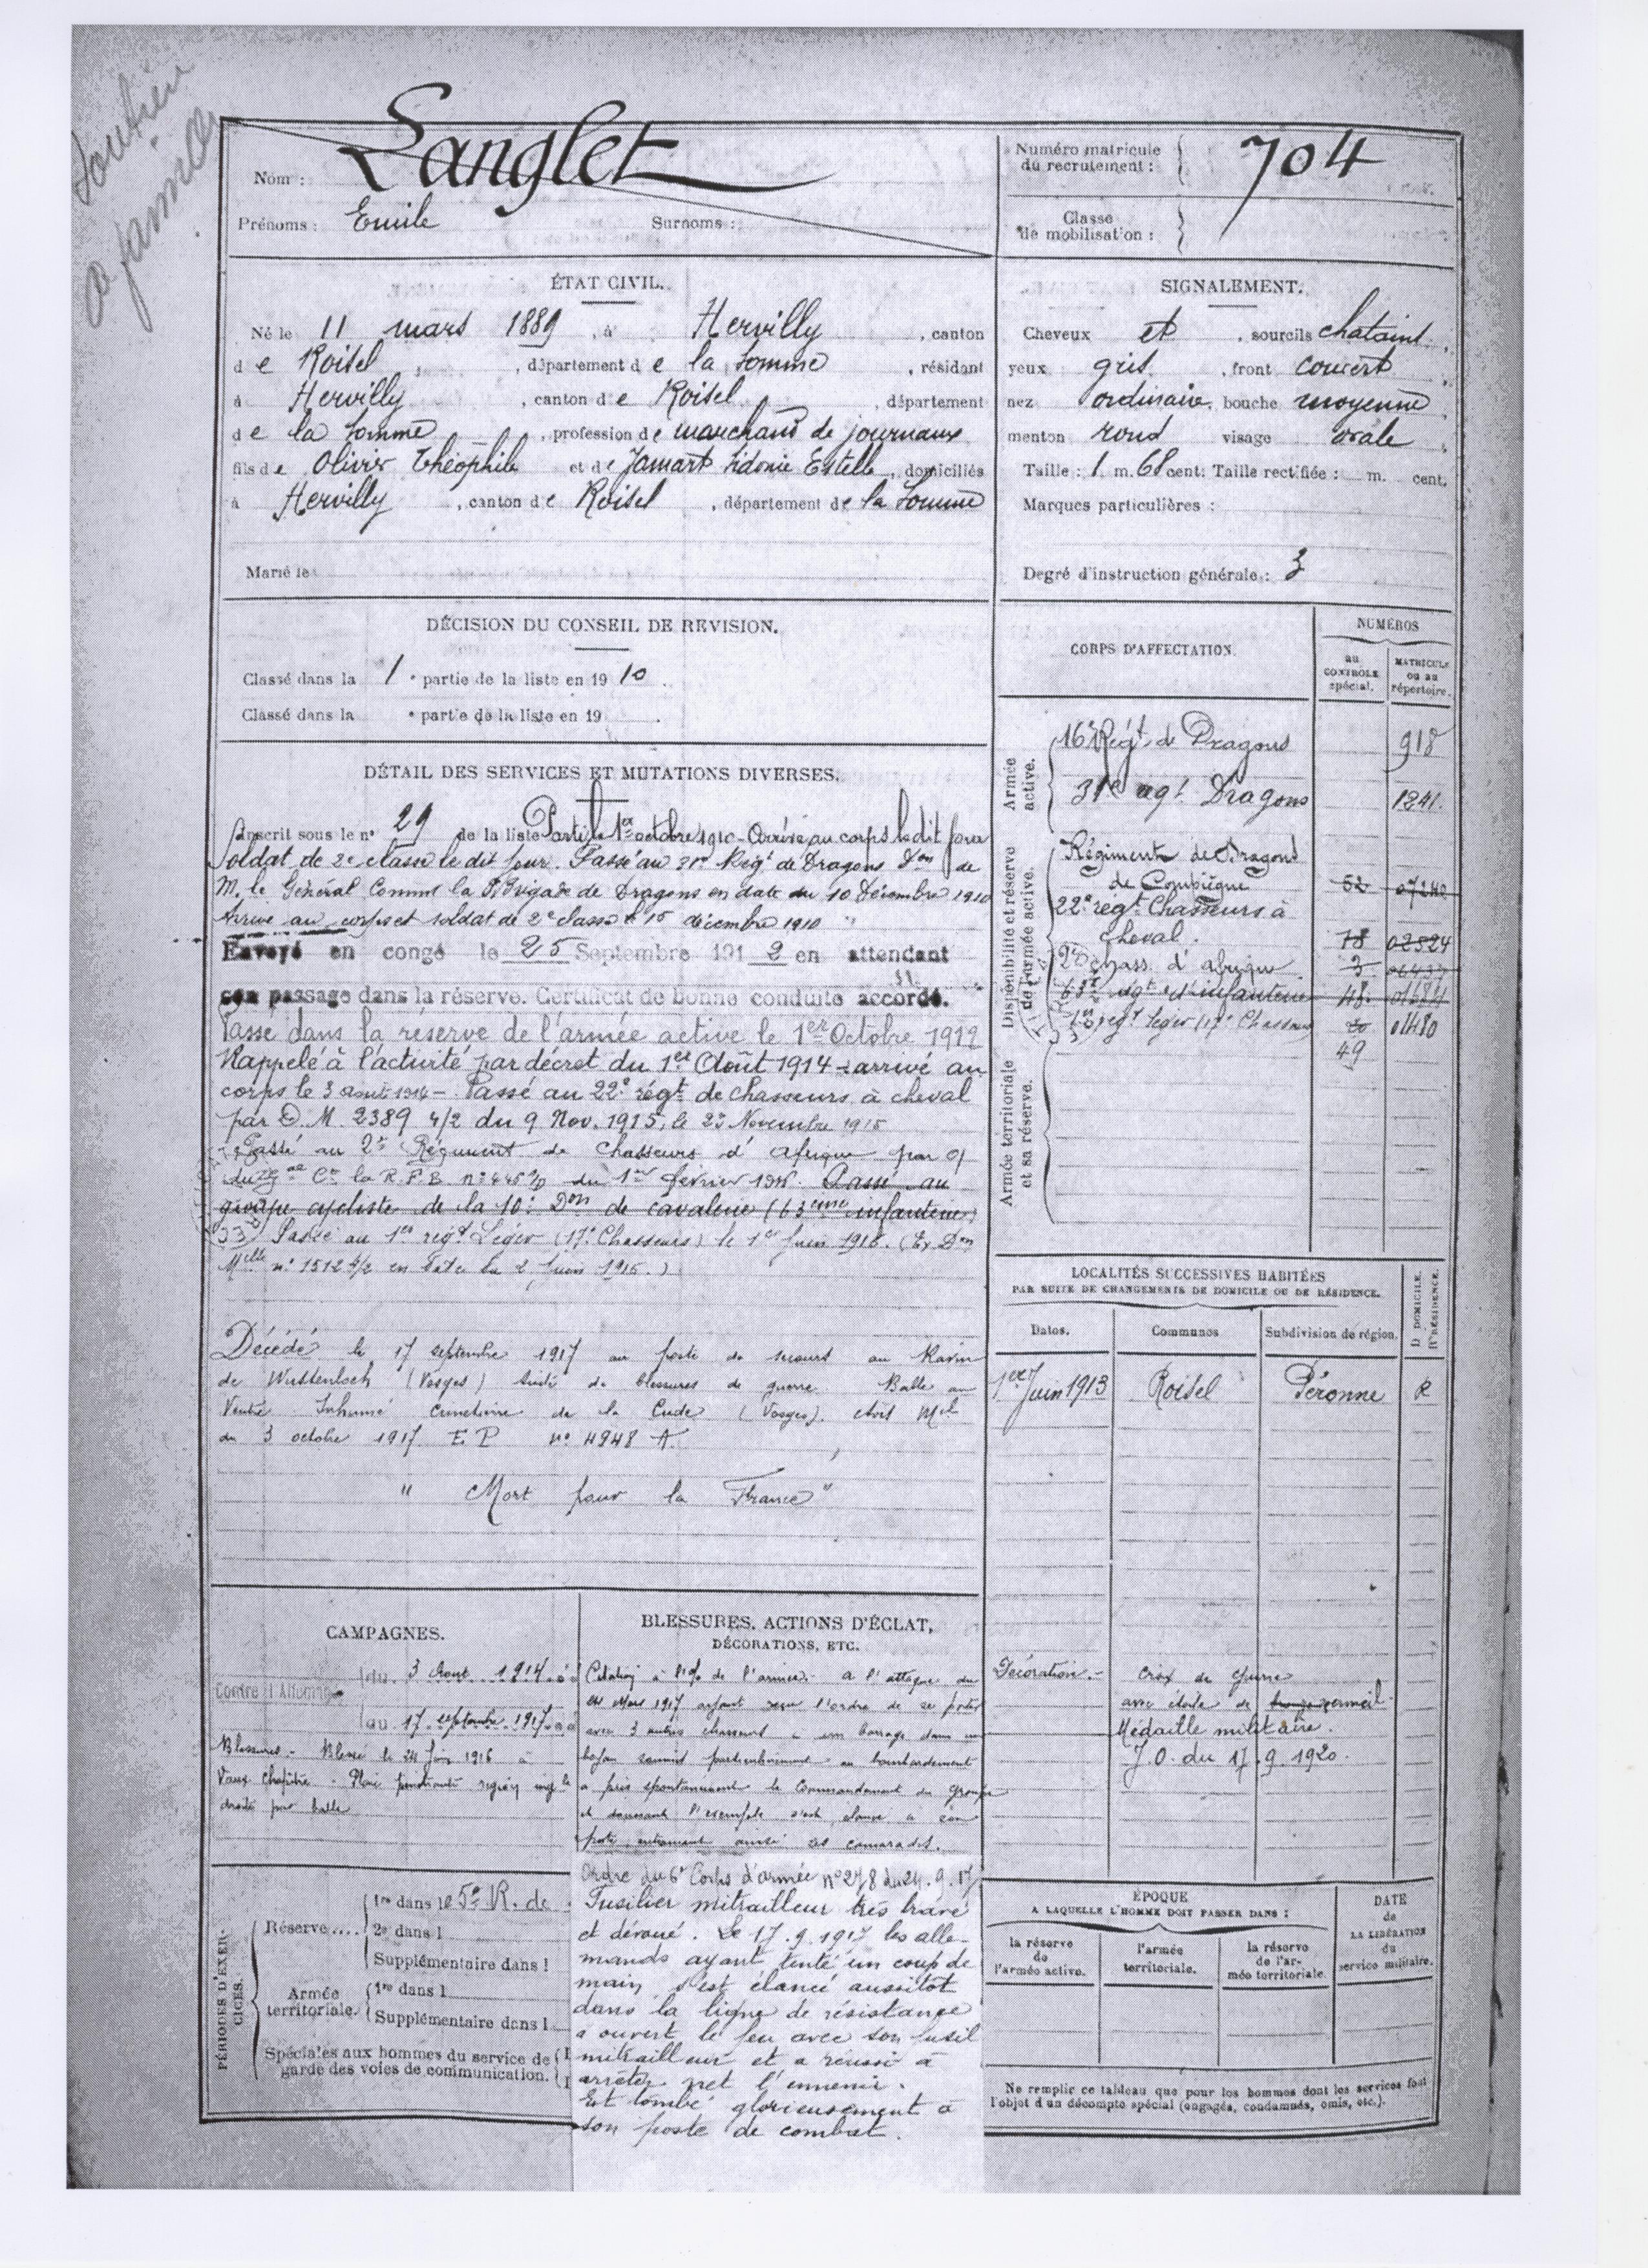 Soutien
de famille
Nom : Langlet
Prénoms : Emile Surnoms :
Numéro matricule
du recrutement : 704
Classe
de mobilisation :
ÉTAT CIVIL.
Né le 11 mars 1889, à Hervilly, canton
de Roisel, département de la Somme, résidant
à Hervilly, canton de Roisel, département
de la Somme, profession de marchand de journaux
fils de Olivier Théophile et de Jamart Sidonie Estelle, domiciliés
à Hervilly, canton de Roisel, département de la Somme
Marié le
SIGNALEMENT.
Cheveux et sourcils chatains
yeux gris, front couvert
nez ordinaire, bouche moyenne
menton rond visage ovale
Taille : 1 m. 68 cent. Taille rectifiée : m. cent.
Marques particulières :
Degré d'instruction générale : 3
DÉCISION DU CONSEIL DE REVISION.
Classé dans la 1e partie de la liste en 1910.
Classé dans la e partie de la liste en 19 .
DÉTAIL DES SERVICES ET MUTATIONS DIVERSES.
Inscrit sous le n° 29 de la liste Parti le 1er octobre 1910 - Arrivé au corps le dit jour
Soldat de 2e classe le dit jour. Passé au 31e Régt de Dragons Don de
M. le Général Commt la Brigade de Dragons en date du 10 Décembre 1910
Arrivé au corps et soldat de 2e classe le 15 décembre 1910
Envoyé en congé le 25 Septembre 1912 en attendant
son passage dans la réserve. Certificat de bonne conduite accordé.
Passé dans la réserve de l'armée active le 1er Octobre 1912
Rappelé à l'activité par décret du 1er Août 1914 - arrivé au
corps le 3 août 1914 - Passé au 22e régt de chasseurs à cheval
par D. M. 2389 4/2 du 9 Nov. 1915, le Novembre 1915
Passé au 2e Régiment de chasseurs d'afrique par
du Ct la R.F.B. du 1er février 1916. Passé au
groupe cycliste de la 10e Don de cavalerie (63eme infanterie)
Passé au 1er régt Léger (17e Chasseurs) le 1er Juin 1916. (Ex Don
Mlle n° 15124/2 en date du 2 Juin 1916.)
Décédé le 17 septembre 1917 au poste de secours au Ravin
de Wustenloch (Vosges) suite de blessures de guerre Balle au
Ventre. Inhumé cimetière de la Cude (Vosges). Avis Mel
du 3 octobre 1917 E.P. n° 4948 A.
" Mort pour la France "
CORPS D'AFFECTATION.
NUMÉROS
au
CONTROLE
spécial.
MATRICULE
ou au
répertoire.
Armée
active.
16e Régt de Dragons 918
31e régt Dragons 1241.
Disponibilité et réserve
de l'armée active.
Régiment de Dragons
de Compiègne 52 07240
22e régt Chasseurs à
cheval. 78 02524
2e chass. d'afrique 3
63e régt d'infanterie 48
1er régt léger (17e Chasseurs) 20 01480
49
Armée territoriale
et sa réserve.
LOCALITÉS SUCCESSIVES HABITÉES
PAR SUITE DE CHANGEMENTS DE DOMICILE OU DE RÉSIDENCE.
Dates. Communes Subdivision de région. D. DOMICILE. R. RÉSIDENCE.
1er Juin 1913 Roisel Péronne R
CAMPAGNES.
Contre l'Allemagne
du 3 Aout 1914 au
du 17 septembre 1917
Blessures - Blessé le 24 Juin 1916 à
Vaux Chapitre - Plaie pénétrante région
droite par balle
BLESSURES, ACTIONS D'ÉCLAT,
DÉCORATIONS, ETC.
Citation à l'o/ de l'armée - A l'attaque du
Mars 1917 ayant reçu l'ordre de se porter
avec 3 autres chasseurs à un barrage dans un
boyau soumis au bombardement
a pris spontanément le Commandement du groupe
et donnant l'exemple s'est élancé à son
poste, entrainant ainsi ses camarades.
Ordre du 6e Corps d'armée n° 278 du 24.9.17
Fusilier mitrailleur très brave
et dévoué. Le 17.9.1917 les alle-
mands ayant tenté un coup de
main, s'est élancé aussitôt
dans la ligne de résistance
a ouvert le feu avec son fusil
mitrailleur et a réussi à
arrêter net l'ennemi.
Est tombé glorieusement à
son poste de combat.
Décoration - Croix de guerre
avec étoile de bronze vermeil
Médaille militaire.
J.O. du 17.9.1920.
PÉRIODES D'EXER-
CICES.
Réserve....
1re dans le 5e R. de
2e dans l
Supplémentaire dans l
Armée
territoriale.
1re dans l
Supplémentaire dans l
Spéciales aux hommes du service de
garde des voies de communication.
ÉPOQUE
A LAQUELLE L'HOMME DOIT PASSER DANS :
la réserve
de
l'armée active.
l'armée
territoriale.
la réserve
de l'ar-
mée territoriale.
DATE
de
LA LIBÉRATION
du
service militaire.
Ne remplir ce tableau que pour les hommes dont les services font
l'objet d'un décompte spécial (engagés, condamnés, omis, etc.).